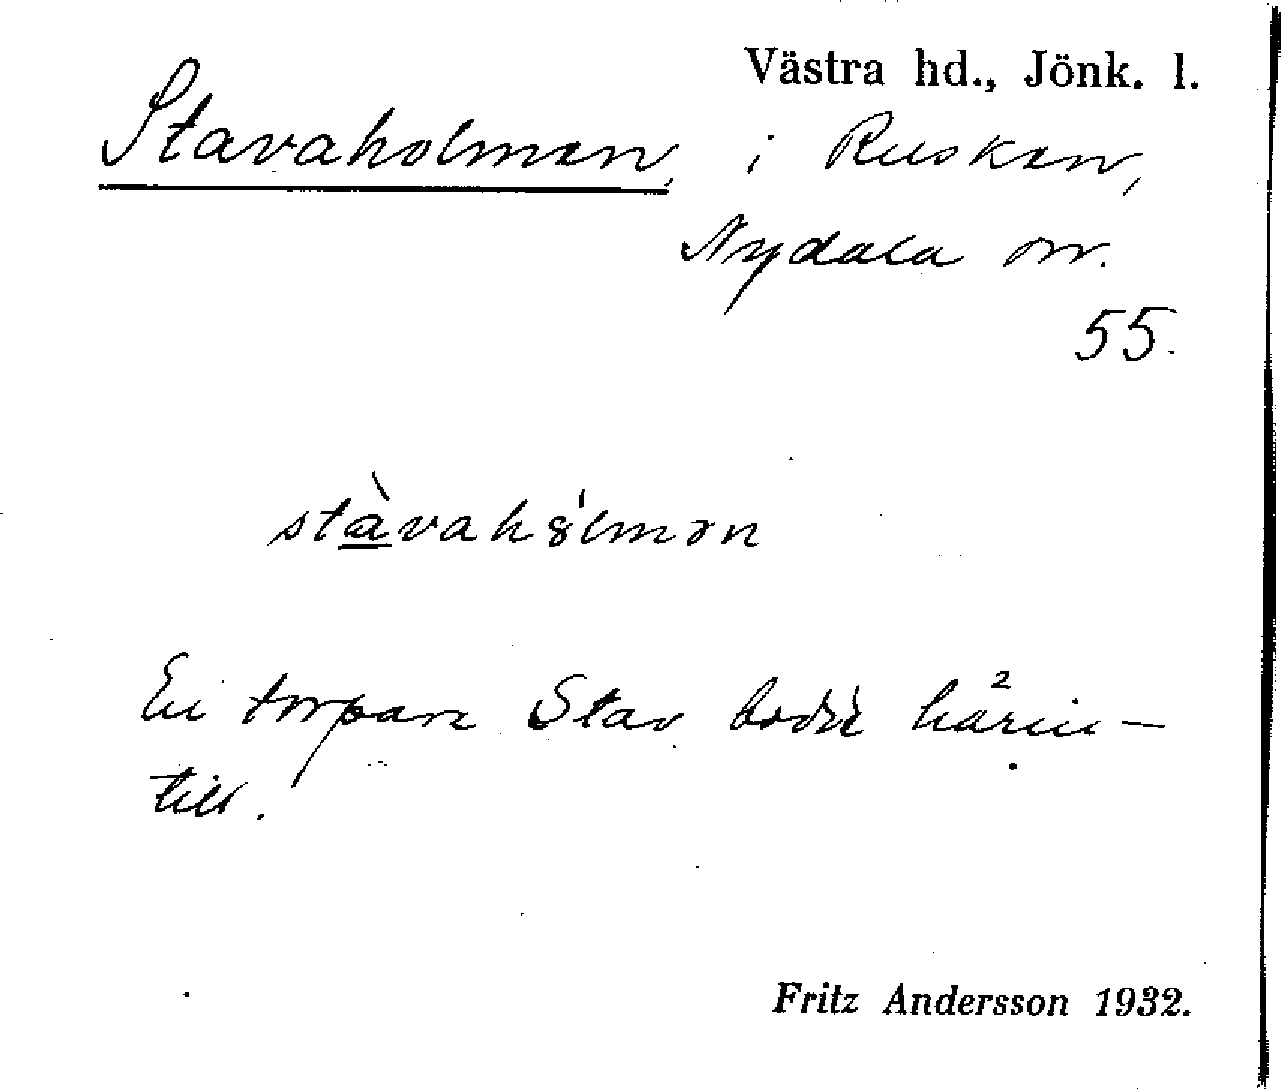 Västra hd., Jönk. l.
Stavaholmen, i Rusken,
Nydala sn.
55.
stàvahólmən
En torpare Stav bodde härin-
till.
Fritz Andersson 1932.